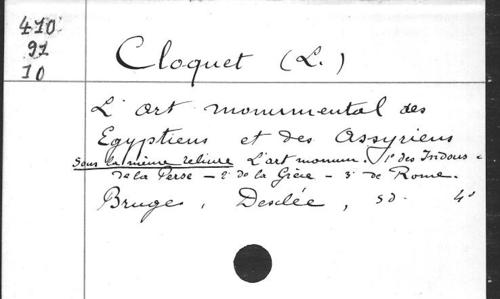 410
91
10
Cloquet (L.)
L'art monumental des
Egyptiens et des Assyriens
Sous la même reliure L'art monum. 1° des Indous -
de la Perse - 2° de la Grèce - 3° de Rome.
Bruges, Desclée, sd. 4°